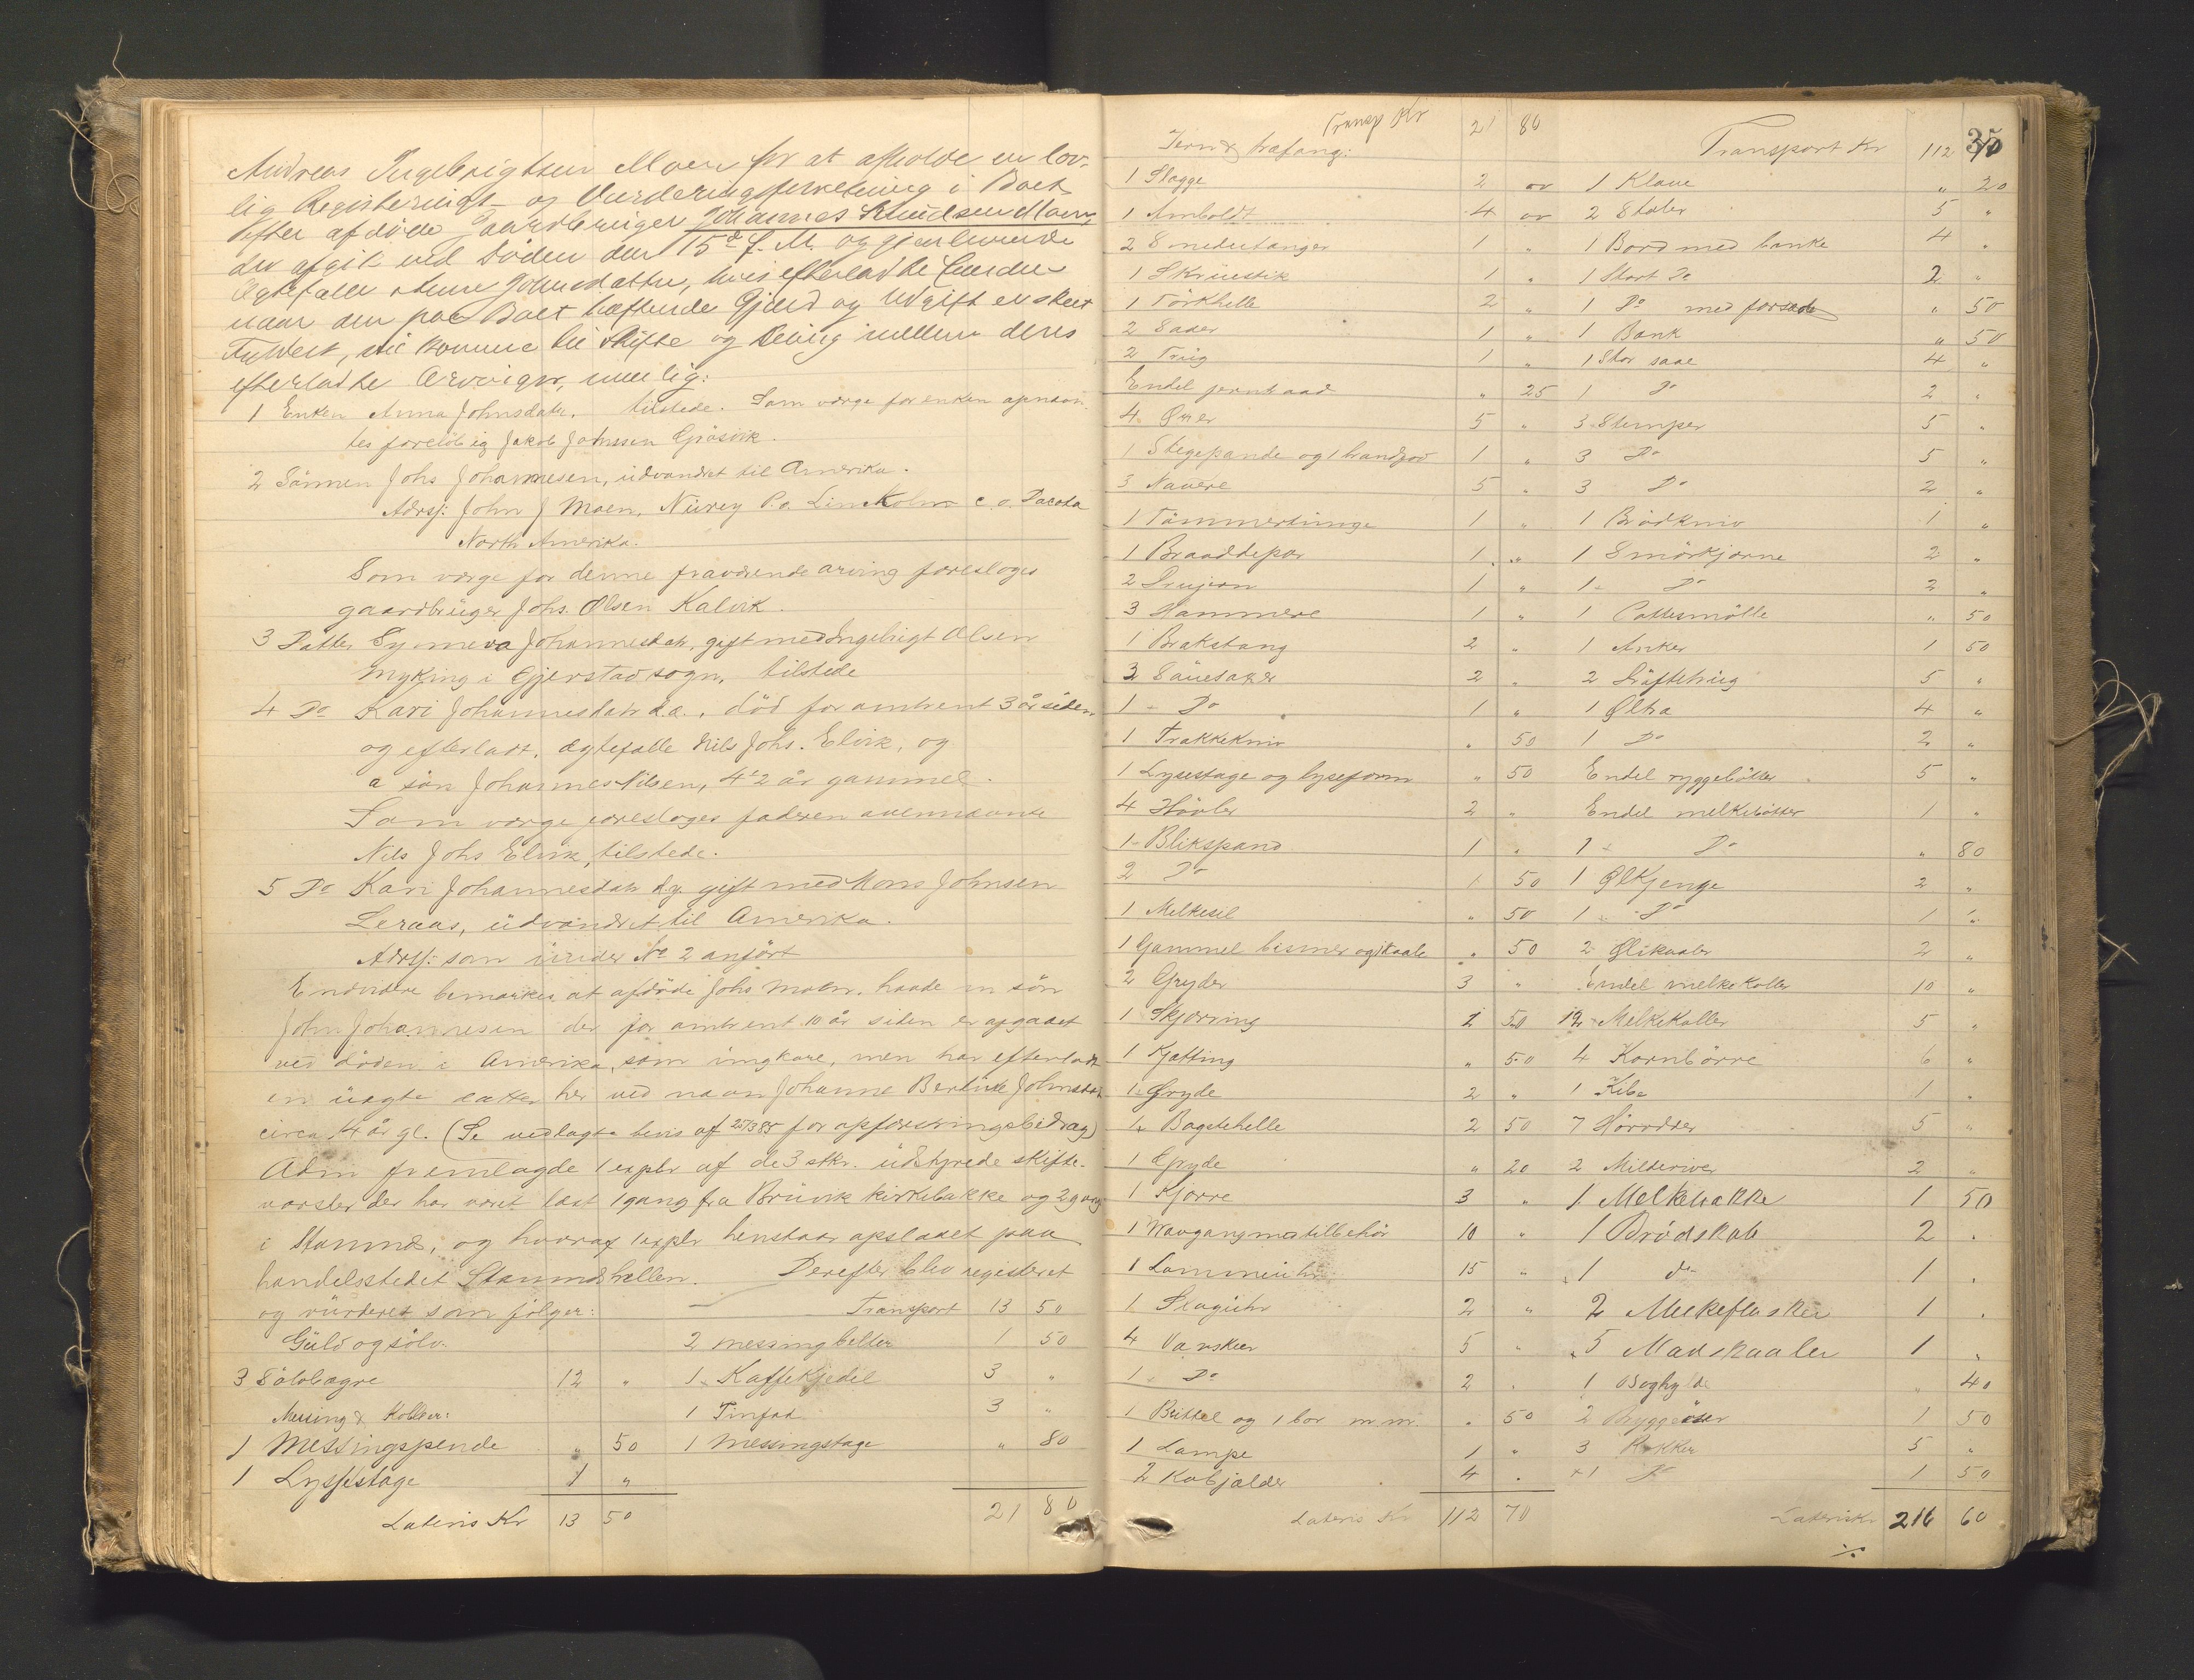 Andreas Ingebrigtsen Moen for at afholde en lov-
lig Registerings- og Vurderingsforretning i Boet
efter afdøde Gaardbruger Johannes Knudsen Moen,
der afgik ved Døden den 15de f. M. og gjenlevende
Ægtefælle Anne Johnsdatter, hvis efterladte Eiendele
naar den paa Boet hæftende Gjæld og Udgift er skeet
Fyldest, vil komme til Skifte og Deling mellem deres
efterladte Arvinger, nemlig:
1 Enken Anna Johnsdatr. tilstede. Som værge for enken opnævn-
tes foreløbig Jakob Johnsen Gjøsvik.
2 Sönnen Johs Johannesen, udvandret til Amerika.
Adrs: John J Moen, Nürey P.o. Linkoln c.o. Dacota
North Amerika.
Som værge for denne fraværende arving foresloges
gaardbrüger Johs. Olsen Kalvik.
3 Datter Synneva Johannesdatr, gift med Ingebrigt Olsen
Myking i Gjerstad sogn, tilstede
4 Do Kari Johannesdatr d.æ., död for omtrent 3 år siden
og efterladt, ægtefælle Nils Johs. Elvik, og
a sön Johannes Nilsen, 4½ år gammel.
Som værge foresloges faderen ovennævnte
Nils Johs Elvik, tilstede.
5 Do Kari Johannesdatr d.y. gift med Mons Johnsen
Leraas, üdvandret til Amerika.
Adrs: som ünder No 2 anført
Endvidere bemærkes at afdöde Johs Moen, havde en sön
John Johannesen der for omtrent 10 år siden er afgaaet
ved döden i Amerika, som üngkare, men har efterladt
en üægte datter her ved navn Johanne Bertine Johnsdatr
circa 14 år gl. (Se vedlagte bevis af 25/3 85 for opfostringsbidrag)
Adm fremlagde 1 explr af de 3 stkr. üdstyrede skifte-
varsler der har været læst 1 gang fra Brüvik kirkebakke og 2 gang
i Stamnes, og hvoraf 1 explr henstaar opslaaet paa
handelsstedet Stamneshellen. Derefter blev registeret
og vürderet som fölger: Transport 13 50
Güld og sölv. 2 messingbelter 1 50
3 Sölvbægre 12 " 1 Kaffekjedel 3 "
Messing & Kobber: 1 Tinfad 3 "
1 Messingspende " 50 1 Messingstage " 80
1 Lysestage 1 "
Lateris Kr 13 50 21 80
Transp Kr 21 80 35
Jern & træfang: Transport Kr 112 70
1 Slægge 2 " 1 Klave " 20
1 Ambolt 4 " 2 Stoler 5 "
2 Smedetanger 1 " 1 Bord med bænke 4 "
1 Skruestik 1 " 1 Stort Do 2 "
1 Törkhelle 2 " 1 Do med forsæde " 50
2 Sader 1 " 1 Bænk " 50
2 Trüg 1 " 1 Stor saae 4 "
Endel jernhaad " 25 1 Do 2 "
4 Øxer 5 " 3 Stemper 5 "
1 Stegepande og 1 brandjod 1 " 3 Do 5 "
3 Navere 5 " 3 Do 2 "
1 Tömmertünge 1 " 1 Brödkniv 1 "
1 Braaddepær 1 " 1 Smörkjærne 2 "
2 Snujern 1 " 1 Do 2 "
3 Hammere 1 " 1 Caffemölle " 50
1 Brækstang 2 " 1 Anker 1 50
3 Sauesaxer 2 " 2 Löftetrüg 5 "
1 Do 1 " 1 Øltra 4 "
1 Trækkekniv " 50 1 Do 2 "
1 Lysestage og lyseform " 50 Endel ryggebötter 5 "
4 Hövler 2 " Endel melkebötter 1 "
1 Blikspand 1 " 1 Do " 80
2 Do 1 50 1 Ølkjenge 2 "
1 Melkesil " 50 1 Do 1 "
1 Gammel bismer og 1 skaale " 50 2 Ølskaaler 2 "
2 Gryder 3 " Endel melkekoller 10 "
1 Skjærring 2 50 12 Melkekoller 5 "
1 Kjætting " 50 4 Kornbörre 6 "
1 Gryde 2 " 1 Kibe 1 "
1 Bagstehelle 2 50 7 Hövrdrer 5 "
1 Gryde " 20 2 Milderiver 2 "
1 Kjærre 3 " 1 Melkebakke 1 50
1 Vævgang m a tillbehör 10 " 1 Brødskab 2 "
1 Lommeuhr 15 " 1 do 1 "
1 Slaguhr 2 " 2 Melkeflasker 1 "
4 Vævskeer 5 " 5 Madskaaler 1 "
1 Do 2 " 1 Boghylde " 40
1 Bittel og 1 bor m.m. " 50 2 Bryggeöser 1 50
1 Lampe 1 " 3 Rokker 5 "
2 Kobjælder 4 " 1 Do 1 50
Lateris Kr 112 70 Lateris Kr 216 60